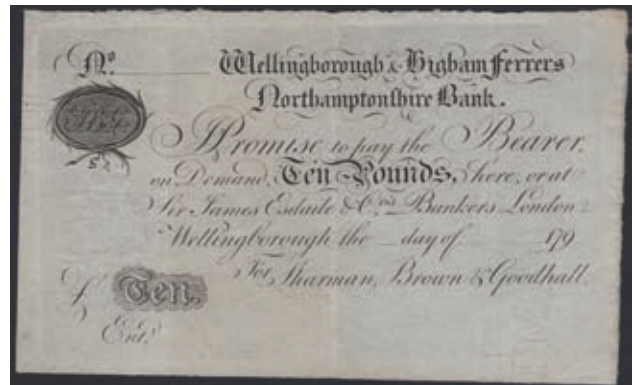 No. Wellingborough & Higham Ferrers
Northamptonshire Bank.
I Promise to pay the Bearer,
on Demand, Ten Pounds, here, or at
Sir James Esdaile & Cos. Bankers London:
Wellingborough the day of 179
For Sharman, Brown & Goodhall.
£ Ten.
Entd.